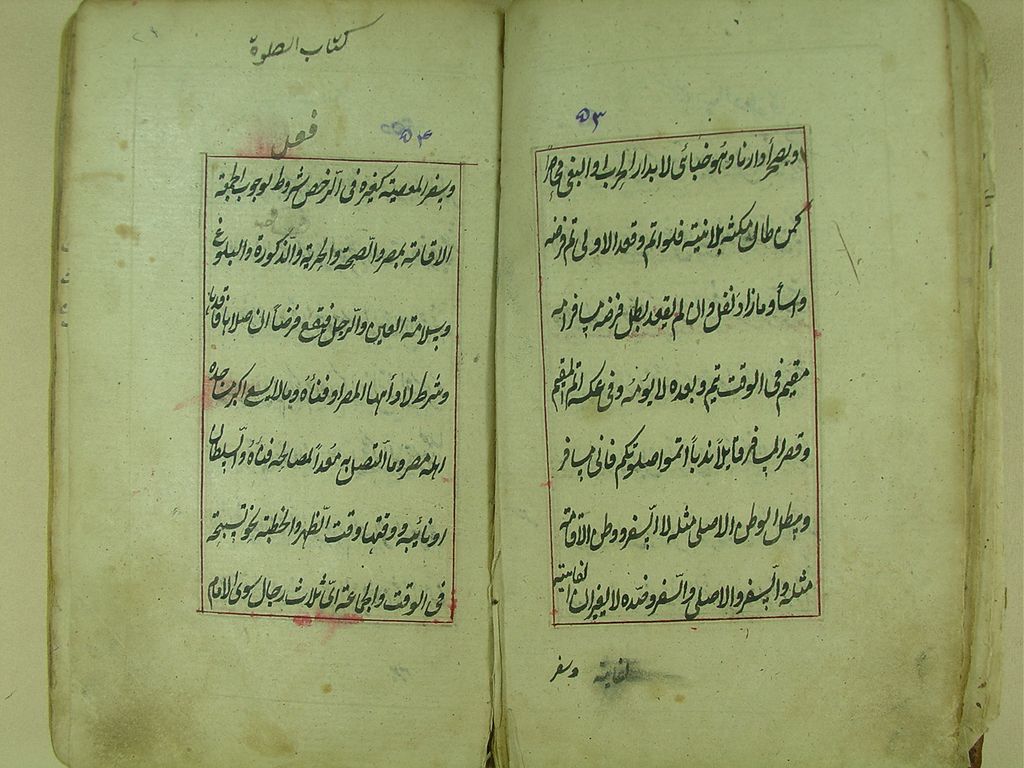 ۵۳
وبصحراء دارنا وهو خبائى لا بدار الحرب او البغى محاصرا
كمن طال مكثه بلا نية فلو اتم وقعد الاولى تم فرضه
واساء وما زاد نفل وان لم يقعد بطل فرضه مسافر امه
مقيم فى الوقت يتم وبعده لا يؤمه وفى عكسه اتم المقيم
وقصر المسافر قايلا ندبا اتموا صلوتكم فانى مسافر
ويبطل الوطن الاصلى مثله لا السفر ووطن الاقامة
مثله والسفر والاصلى والسفر وضده لا يغيران الفائتة
لفائتة
وسفر
كتاب الصلوة
۵۴
فصل
وسفر المعصية كغيره فى الرخص شروط لوجوب الجمعة
الاقامة بمصر والصحة والحرية والذكورة والبلوغ
وسلامة العين والرجل فتقع فرضا ان صلاها فاقدها
وشرط لادائها المصر او فنائه وما لا يسع اكبر مساجده
اهله مصر وما اتصل به معدا لمصالحه فنائه والسلطان
او نائبه ووقتها وقت الظهر والخطبة نحو تسبيحة
فى الوقت والجماعة اى ثلاث رجال سوى الامام